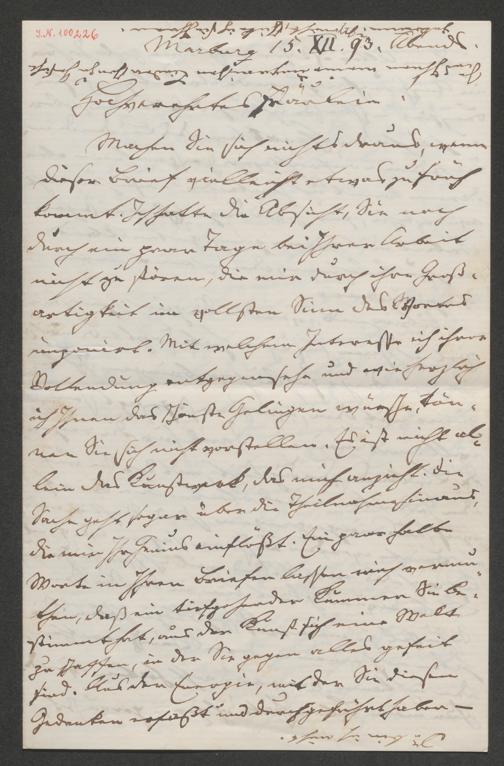 I.N. 100226
Marburg 15. XII. 93. Abends.
Hochverehrtes Fräulein!
Machen Sie sich nichts daraus, wenn
dieser Brief vielleicht etwas zu früh
kommt. Ich hatte die Absicht, Sie noch
durch ein paar Tage bei Ihrer Arbeit
nicht zu stören, die mir durch ihre Groß-
artigkeit im vollsten Sinn des Wortes
imponiert. Mit welchem Interesse ich ihrer
Vollendung entgegensehe und wie herzlich
ich Ihnen das schönste Gelingen wünsche, kön-
nen Sie sich nicht vorstellen. Es ist nicht al-
lein das Kunstwerk, das mich anzieht. Die
Sache geht sogar über die Theilnahme hinaus,
die mir Ihr Genius einflößt. Ein paar halbe
Worte in Ihren Briefen lassen mich vermu-
then, daß ein tiefgehender Kummer Sie be-
stimmt hat, aus der Kunst sich eine Welt
zu schaffen, in der Sie gegen alles gefeit
sind. Aus der Energie, mit der Sie diesen
Gedanken erfaßt und durchgeführt haben —